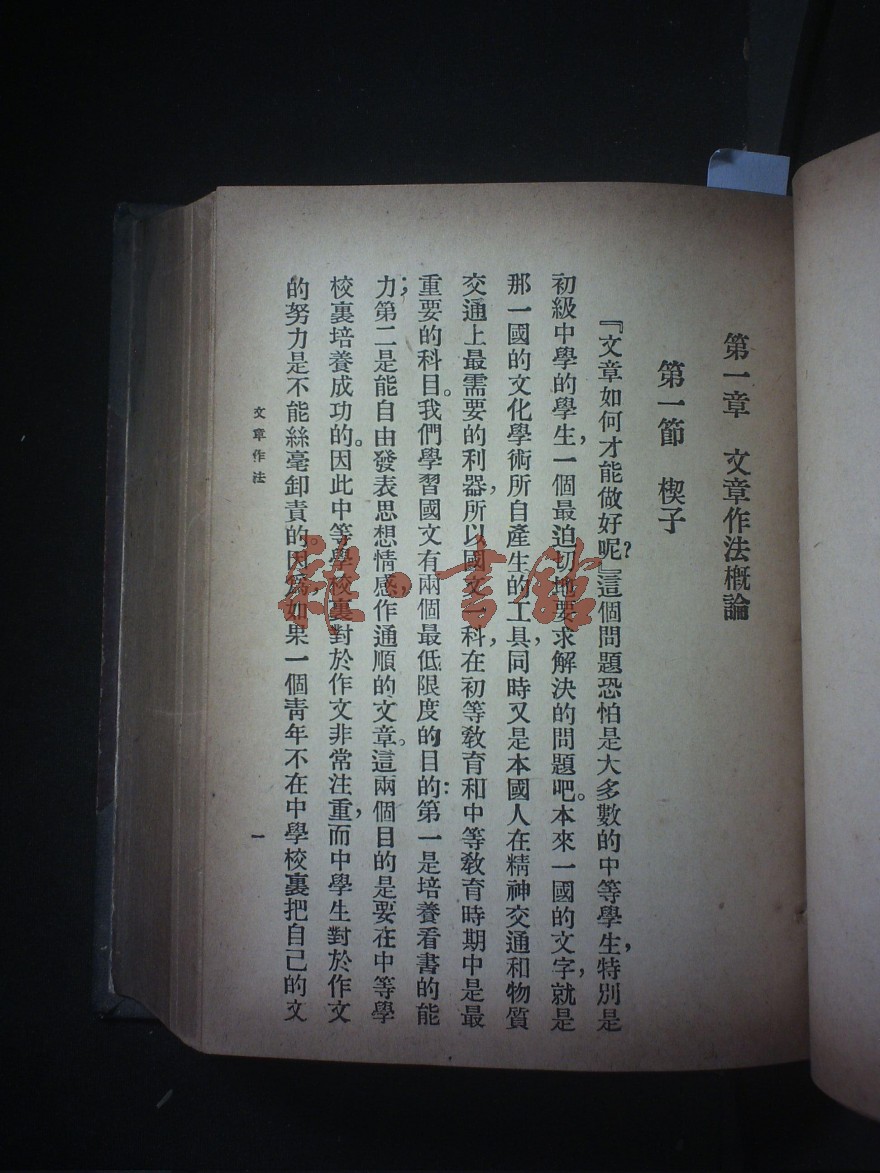 第一章　文章作法概論
第一節　楔子
『文章如何才能做好呢？』這個問題恐怕是大多數的中等學生，特別是
初級中學的學生，一個最迫切地要求解決的問題吧。本來一國的文字，就是
那一國的文化學術所自產生的工具，同時又是本國人在精神交通和物質
交通上最需要的利器，所以國文一科，在初等教育和中等教育時期中是最
重要的科目。我們學習國文有兩個最低限度的目的：第一是培養看書的能
力；第二是能自由發表思想情感，作通順的文章。這兩個目的是要在中等學
校裏培養成功的。因此中等學校裏對於作文非常注重，而中學生對於作文
的努力是不能絲毫卸責的。因爲，如果一個靑年不在中學校裏把自己的文
文章作法
一
雜·書館